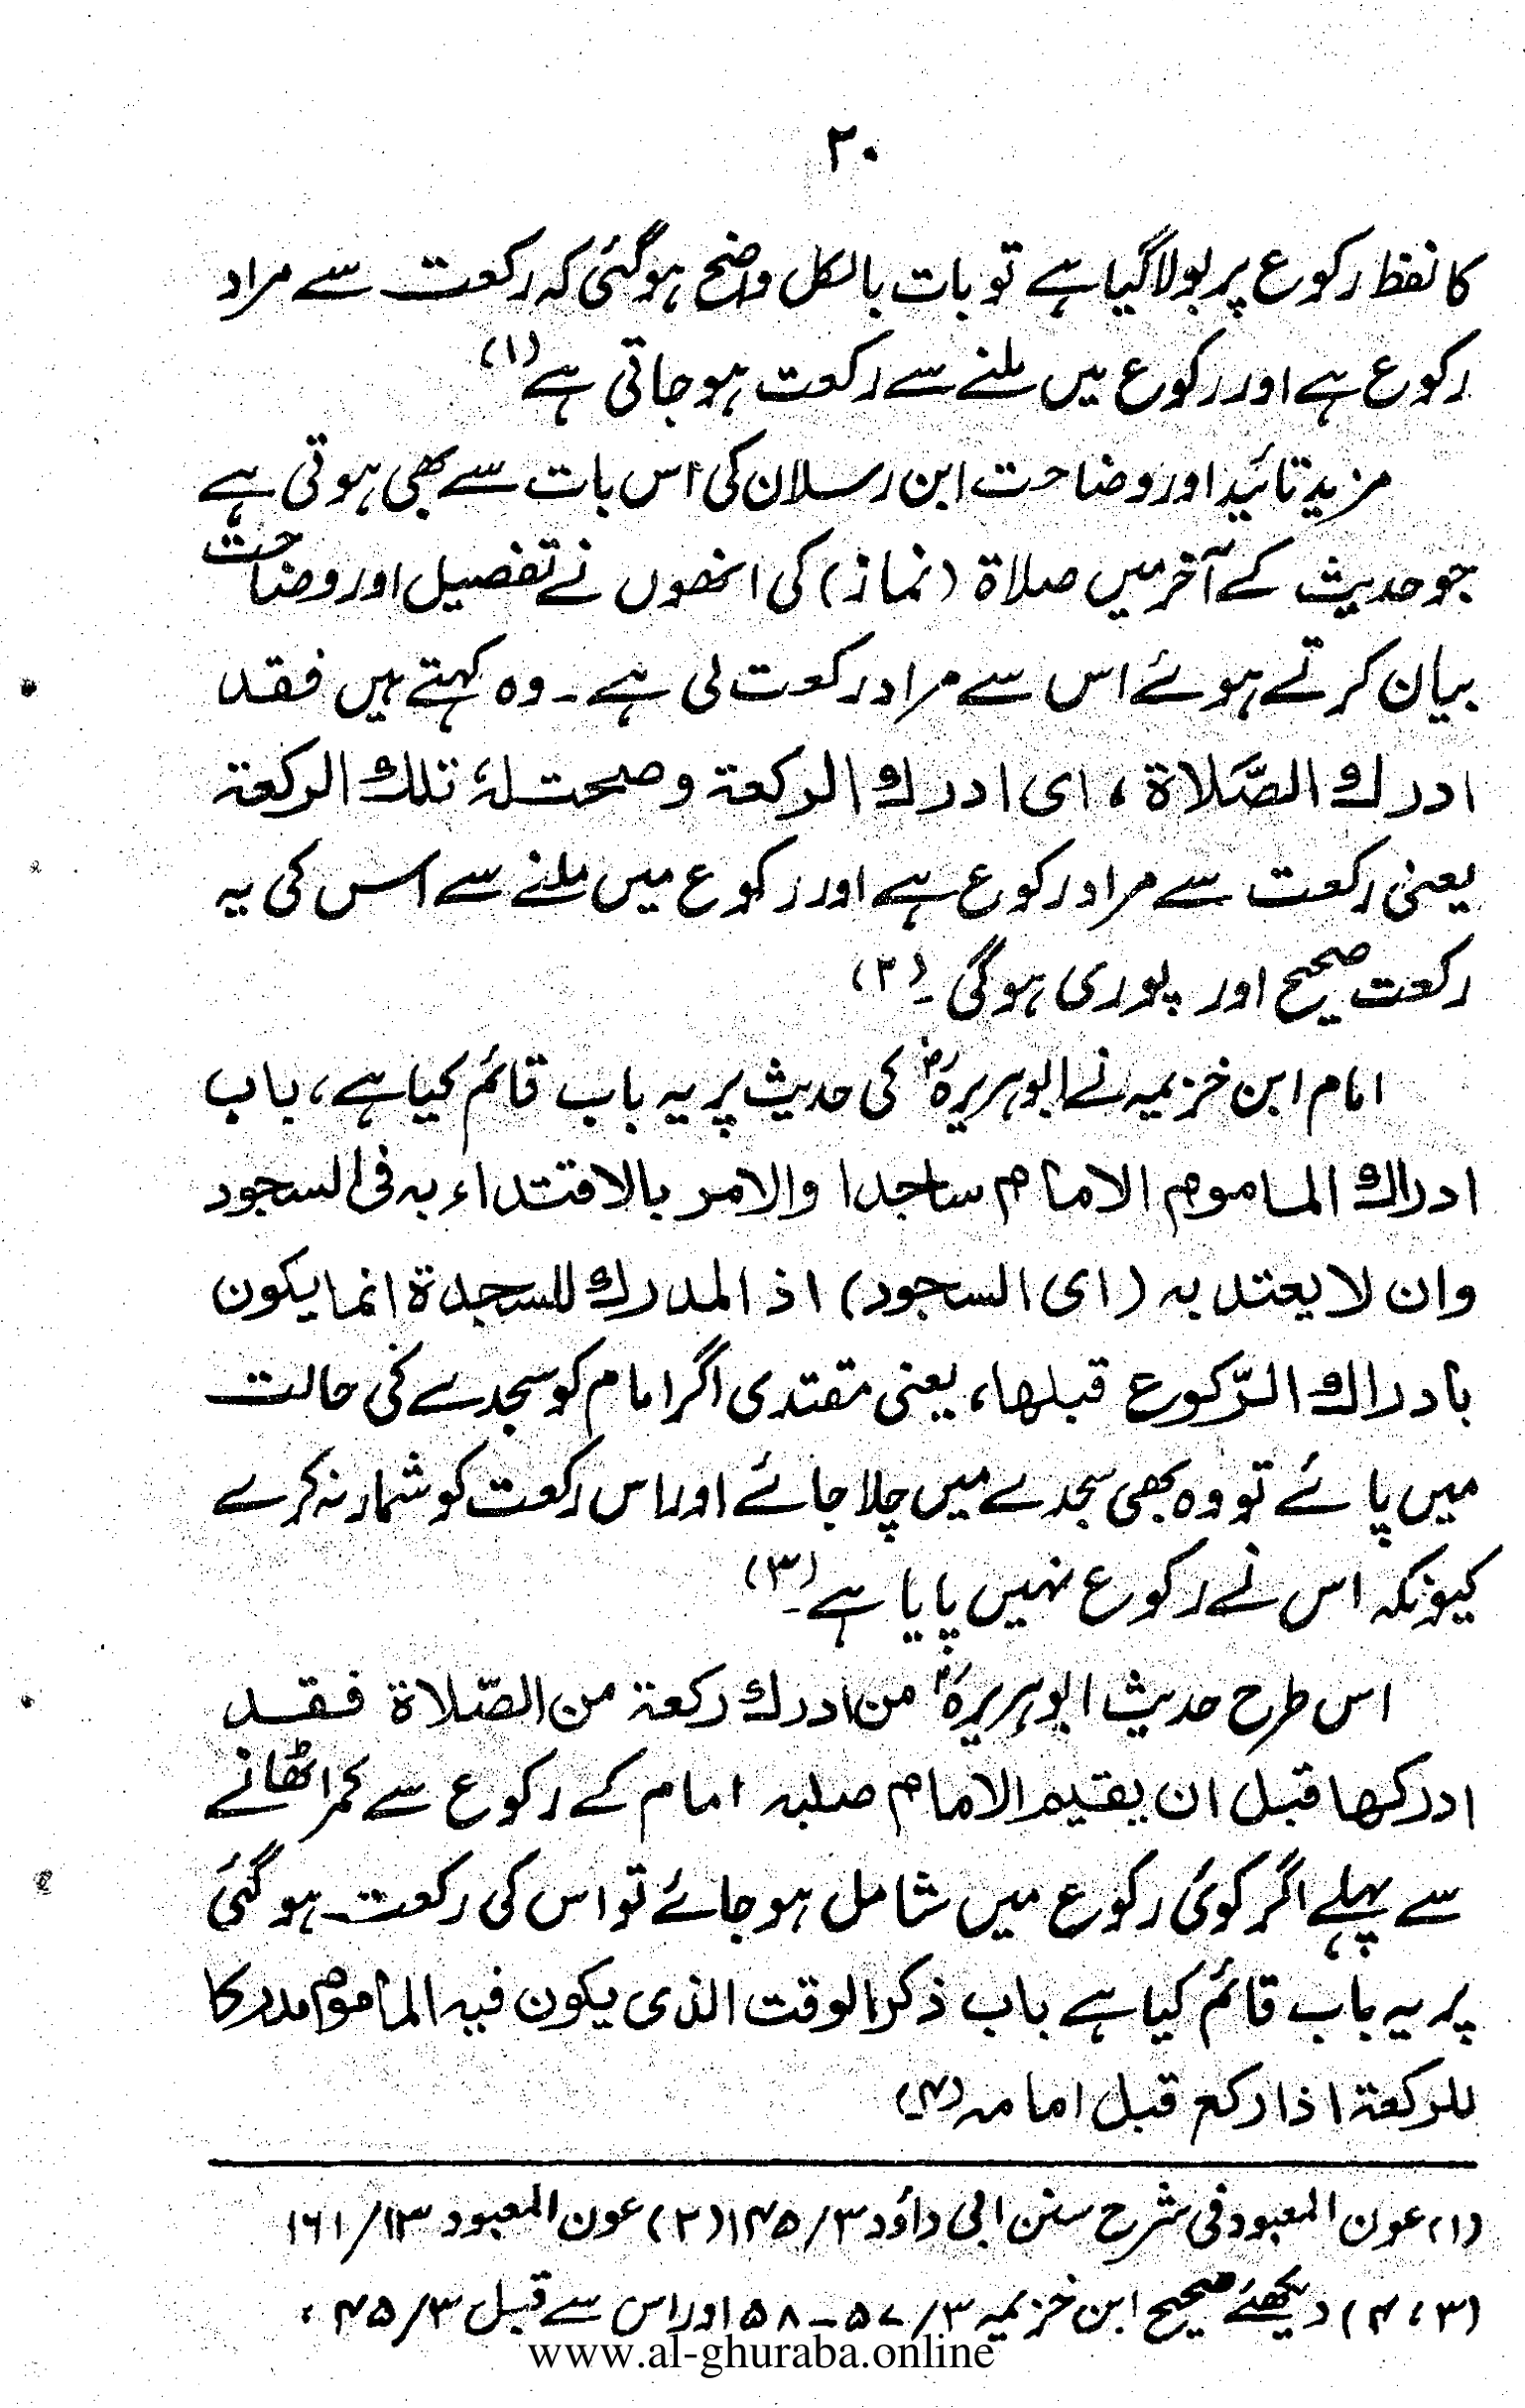 ۲۰
کا لفظ رکوع پر بولا گیا ہے تو بات بالکل واضح ہوگئی کہ رکعت سے مراد
رکوع ہے اور رکوع میں ملنے سے رکعت ہوجاتی ہے (۱)
مزید تائید اور وضاحت ابن رسلان کی اس بات سے بھی ہوتی ہے
جو حدیث کے آخر میں صلاۃ (نماز) کی انھوں نے تفصیل اور وضاحت
بیان کرتے ہوئے اس سے مراد رکعت لی ہے۔ وہ کہتے ہیں فقد
ادرك الصَّلاة ، ای ادرك الركعة وصحت لہٗ تلك الركعة
یعنی رکعت سے مراد رکوع ہے اور رکوع میں ملنے سے اس کی یہ
رکعت صحیح اور پوری ہوگی۔ (۲)
امام ابن خزیمہ نے ابوہریرہؓ کی حدیث پر یہ باب قائم کیا ہے، باب
ادراك المأموم الامام ساجدا والامر بالاقتداء به فی السجود
وان لا یعتد به (ای السجود) اذ المدرك للسجدة انما یکون
بادراك الرّکوع قبلها، یعنی مقتدی اگر امام کو سجدے کی حالت
میں پائے تو وہ بھی سجدے میں چلا جائے اور اس رکعت کو شمار نہ کرے
کیونکہ اس نے رکوع نہیں پایا ہے۔ (۳)
اس طرح حدیث ابوہریرہؓ من ادرك ركعة من الصّلاة فقد
ادرکها قبل ان یقیم الامام صلبه امام کے رکوع سے کمر اٹھانے
سے پہلے اگر کوئی رکوع میں شامل ہوجائے تو اس کی رکعت ہوگئی
پر یہ باب قائم کیا ہے باب ذکر الوقت الذی یکون فیه المأموم مدرکا
للرکعة اذا رکع قبل امامه (۴)
(۱) عون المعبود فی شرح سنن ابی داؤد ۳/۱۴۵ (۲) عون المعبود ۱۳/۱۶۱
(۳، ۴) دیکھئے صحیح ابن خزیمہ ۳/۵۷-۵۸ اور اس سے قبل ۳/۴۵،
www.al-ghuraba.online